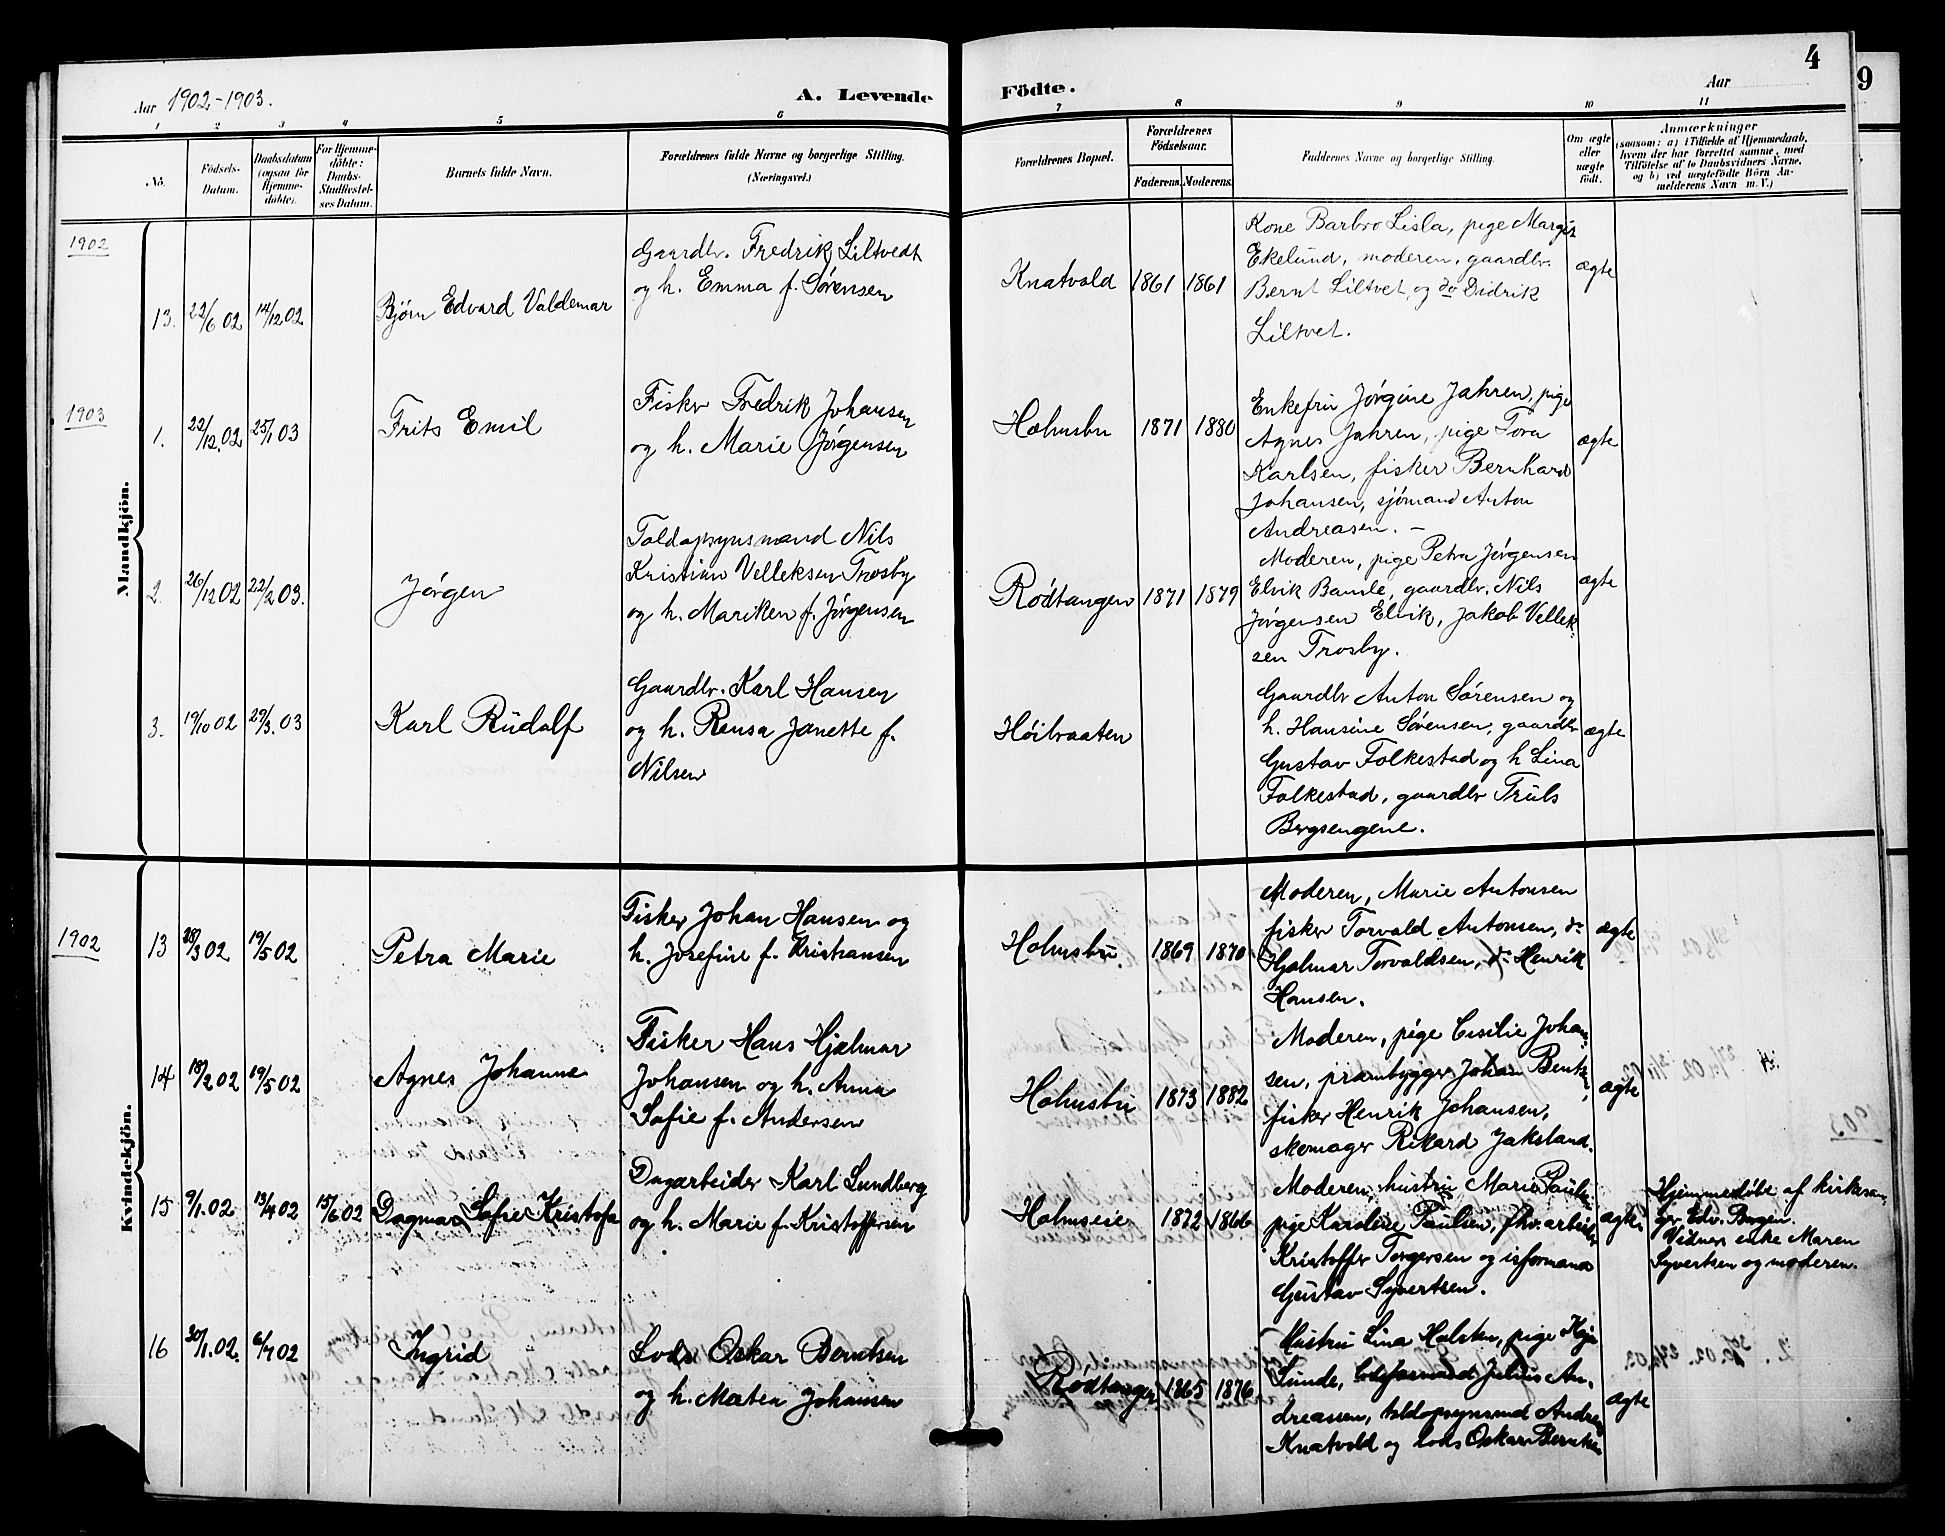 4
9
Aar 1902-1903.
A. Levende Födte.
Aar
1 2 3 4 5 6 7 8 9 10 11
No.
Födsels-
Datum.
Daabsdatum
(ogsaa for
Hjemme-
döbte).
For Hjemme-
döbte:
Daabs-
Stadfæstel-
ses Datum.
Barnets fulde Navn.
Forældrenes fulde Navne og borgerlige Stilling.
(Næringsvei.)
Forældrenes Bopæl.
Forældrenes
Födselsaar.
Faderens. Moderens.
Faddernes Navne og borgerlige Stilling.
Om ægte
eller
uægte
födt.
Anmærkninger
(saasom: a) i Tilfælde af Hjemmedaab,
hvem der har forrettet samme, med
Tilföielse af to Daabsvidners Navne,
og b) ved uægtefödte Börn An-
melderens Navn m. V.)
Mandkjön.
1902
13. 22/6 02 14/12 02
Bjørn Edvard Valdemar
Gaardbr. Fredrik Liltvedt
og h. Emma f. Sørensen
Knatvold 1861 1861
Kone Barbro Lisla, pige Margit
Ekelund, moderen, gaardbr.
Bernt Liltvet, og do Didrik
Liltvet.
ægte
1903
1. 22/12 02 25/1 03
Frits Emil
Fisker Fredrik Johansen
og h. Marie Jørgensen
Holmsbu 1871 1880
Enkefru Jørgine Jahren, pige
Agnes Jahren, pige Tora
Karlsen, fisker Bernhard
Johansen, sjømand Anton
Andreasen. –
ægte
2. 26/12 02 22/2 03.
Jørgen
Toldopsynsmand Nils
Kristian Velleksen Trosby
og h. Mariken f. Jørgensen
Rødtangen 1871 1879
Moderen, pige Petra Jørgensen
Elvik Bamle, gaardbr. Nils
Jørgensen Elvik, Jakob Vellek-
sen Trosby.
ægte
3. 19/10 02 29/3. 03
Karl Rudolf
Gaardbr. Karl Hansen
og h. Rensa Janette f.
Nilsen
Høibraaten
Gaardbr Anton Sørensen og
h. Hansine Sørensen, gaardbr
Gustav Folkestad og h Lina
Folkestad, gaardbr Truls
Bergsengene.
ægte
Kvindekjön.
1902
13 28/3 02 19/5 02
Petra Marie
Fisker Johan Hansen og
h. Josefine f. Kristiansen
Holmsbu. 1869 1870
Moderen, Marie Antonsen
fisker Torvald Antonsen, do
Hjalmar Torvaldsen, do Henrik
Hansen.
ægte
14 18/2 02 19/5 02
Agnes Johanne
Fisker Hans Hjalmar
Johansen og h. Anna
Sofie f. Andersen
Holmsbu 1873 1882
Moderen, pige Cesilie Johan-
sen, prambygger Johan Bentsen,
fisker Henrik Johansen,
skomager Rikard Jaksland.
ægte
15 9/1. 02 13/4 02 15/6 02
Dagmar Sofie Kristofa
Dagarbeider Karl Lundberg
og h. Marie f. Kristoffersen
Holmseie 1872 1866
Moderen, hustru Marie Paulsen
pige Karoline Paulsen, fhv. arbeider
Kristoffer Torgersen og isformand
Gustav Syvertsen.
ægte
Hjemmedøbt af kirkesan-
ger Edv. Borgen.
Vidner enke Maren
Syvertsen og moderen.
16 30/1. 02. 6/7 02
Ingrid
Lods Oskar Berntsen
og h. Martea Johansen
Rødtangen 1865 1876
Hustru Lina Holsten, pige
Lunde, lodsformand Julius An-
dreassen, toldopsynsmd Andreas
Knatvold og lods Oskar Berntsen
ægte